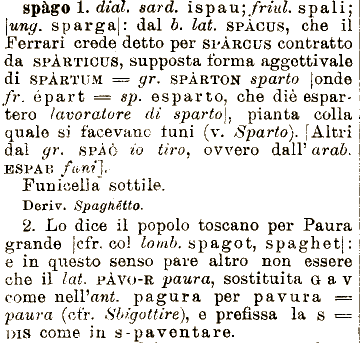 spàgo 1. dial. sard. ispau; friul. spali;
[ung. sparga]: dal b. lat. SPÀCUS, che il
Ferrari crede detto per SPÀRCUS contratto
da SPÀRTICUS, supposta forma aggettivale
di SPÀRTUM = gr. SPÀRTON sparto [onde
fr. épart = sp. esparto, che diè espar-
tero lavoratore di sparto], pianta colla
quale si facevano funi (v. Sparto). [Altri
dal gr. SPAÒ io tiro, ovvero dall' arab.
ESPAB funi].
Funicella sottile.
Deriv. Spaghétto.
2. Lo dice il popolo toscano per Paura
grande [cfr. col lomb. spagot, spaghet]:
e in questo senso pare altro non essere
che il lat. PÀVO-R paura, sostituita G a V
come nell'ant. pagura per pavura =
paura (cfr. Sbigottire), e prefissa la S =
DIS come in s-paventare.